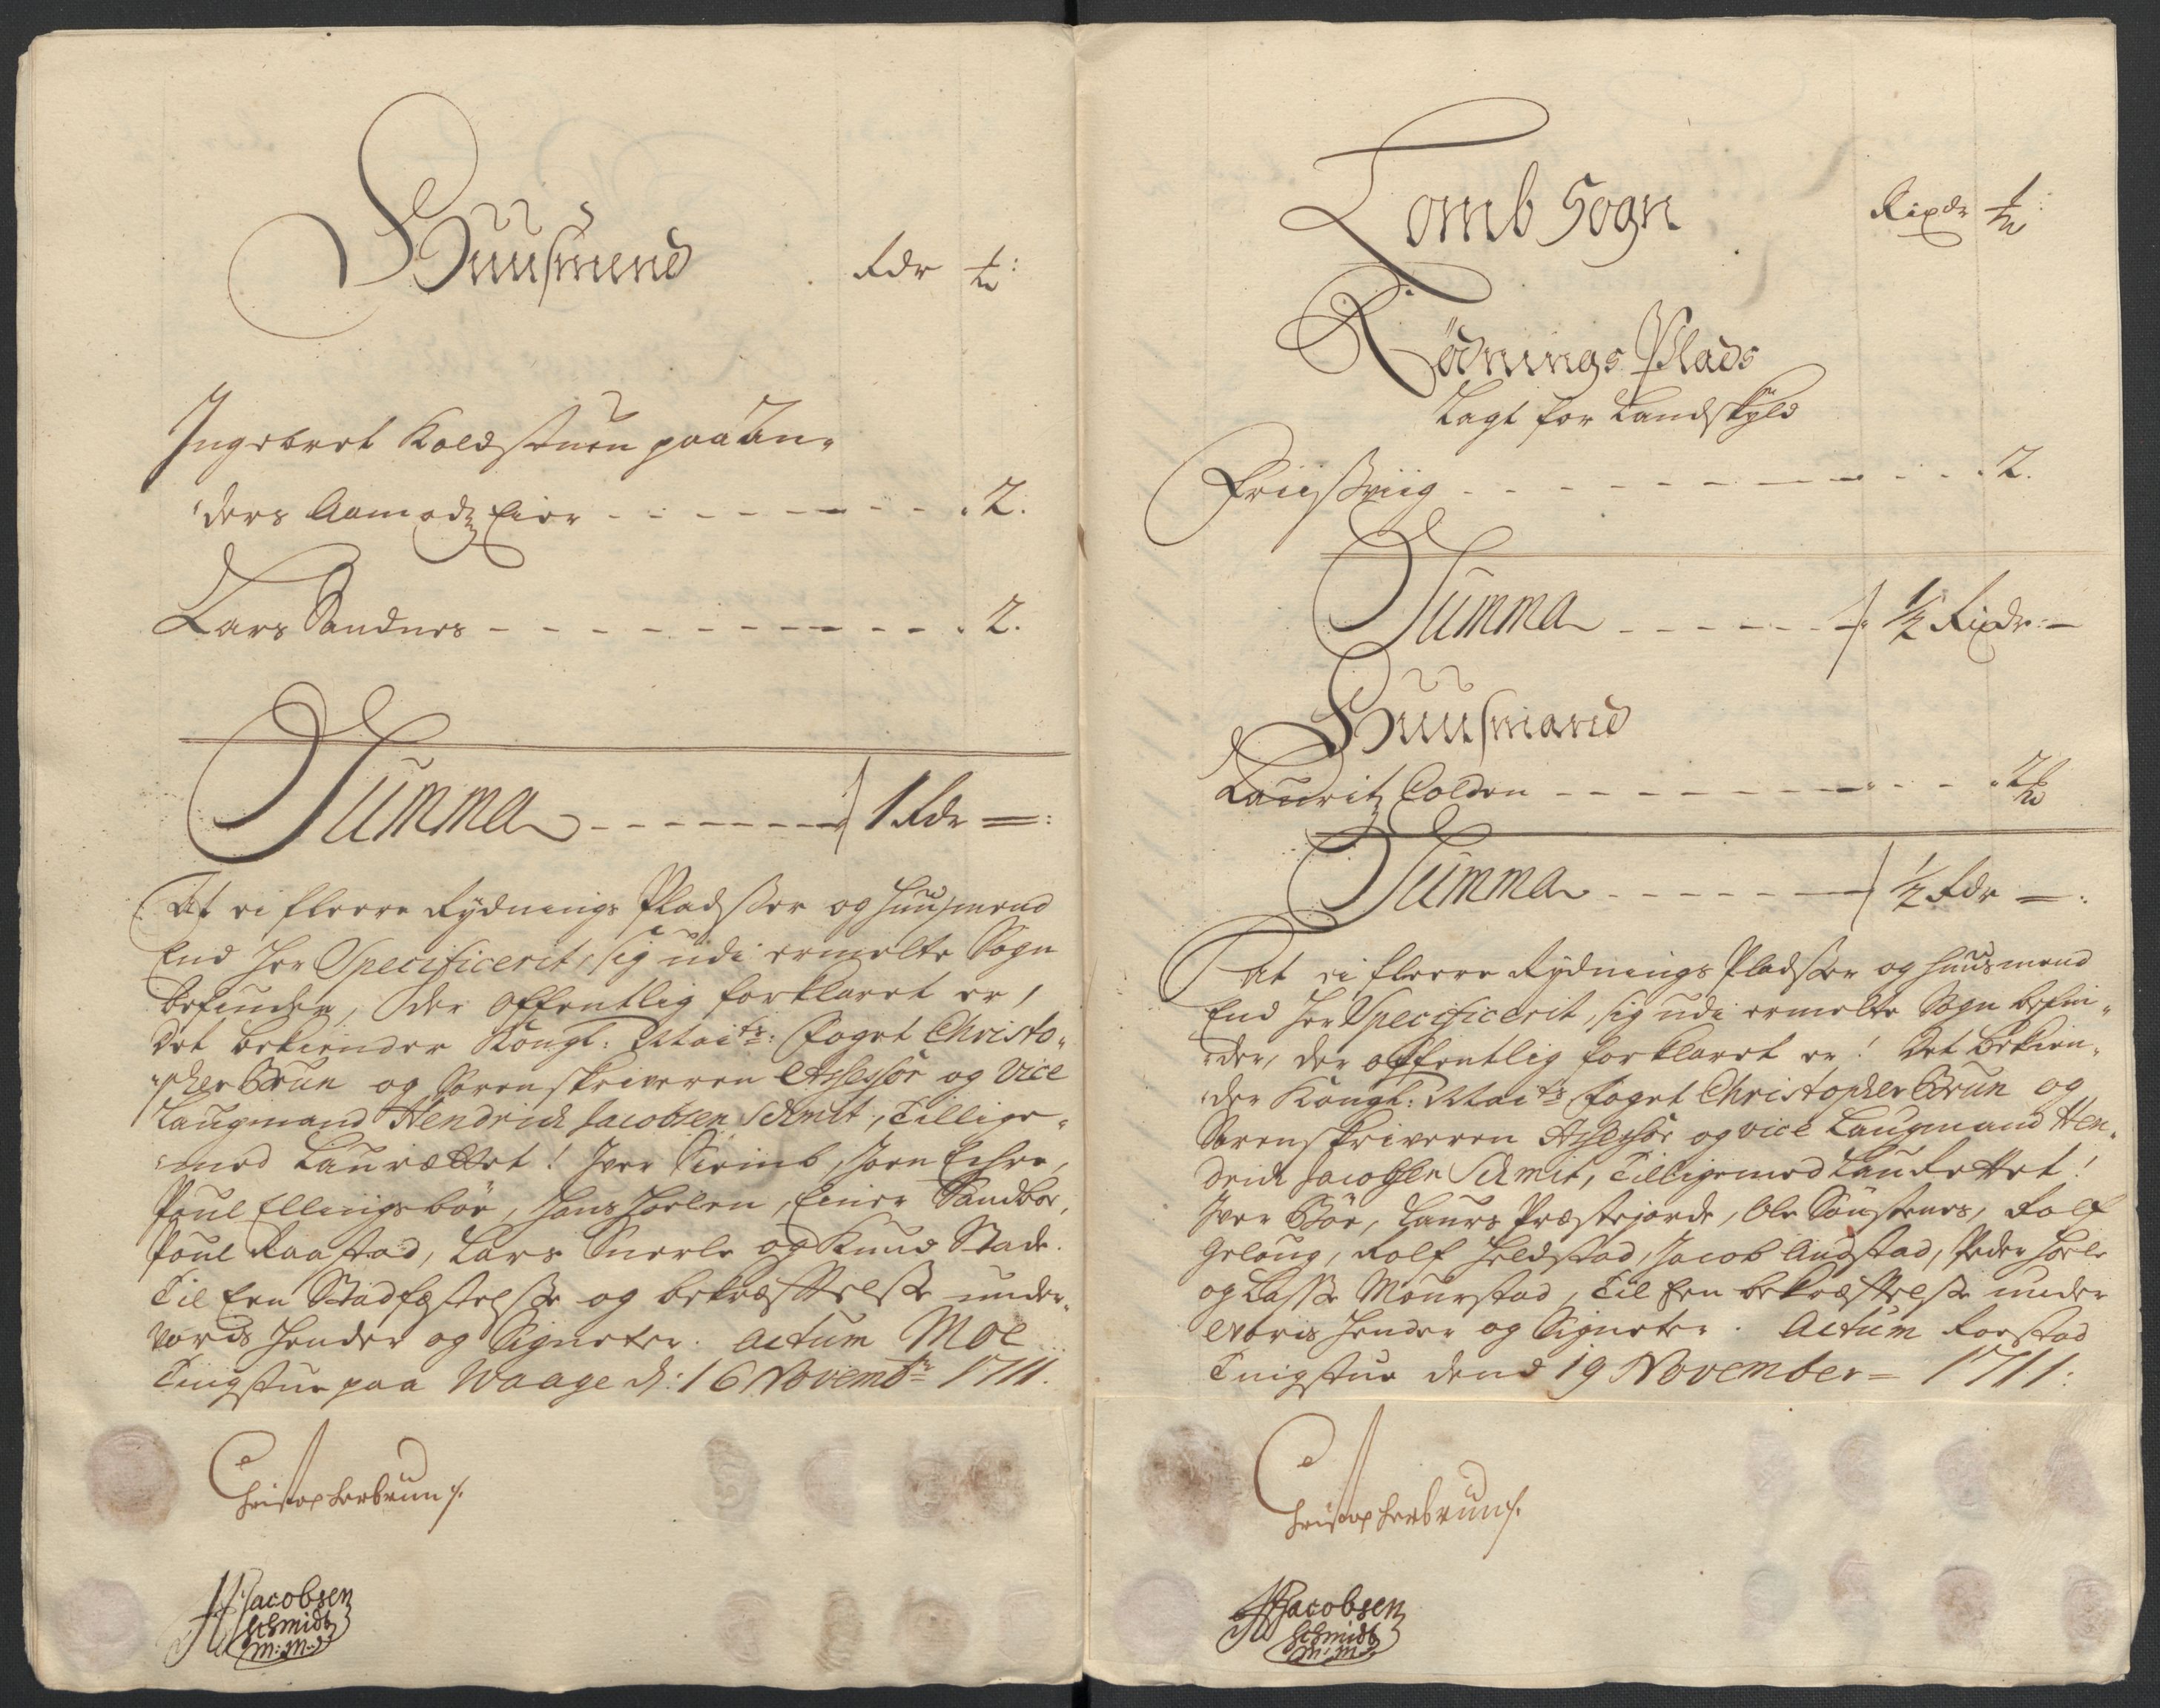 Huusmend
Rdr ½:
Ingebret Koldstuen paa An-
ders Aamodtz Eier - - - - - - - - . 2.
Lars Sandnes - - - - - - - - - - . 2.
Summa - - - - - - - 1 Rdr =:
At ei fleere Rydnings Pladsser og Huusmend
End her Specificerit, sig udi ermelte Sogn
befinder, der offentlig forklaret er,
det bekiender Kongl: Maits: Foget Christo-
pher Brun og Sorenskriveren Assessor og Vice
Laugmand Hendrich Jacobsen Schmit, Tillige-
med Laurættet! Iver
Poul Ellingsbøe, Hans Hoelen, Einer Sandboe,
Poul Raastad, Lars Snerle og Knud Stade.
Til Een Stadfæstelsse og bekræfttelsse under
vores Hender og Signeter. Actum Moe
Tingstue paa Waage d: 16 Novembr 1711.
Christopher Brun
HJacobsen
Schmidt
m: m
Lomb Sogn
Rixdr ½
Rødnings Plads
Lagt for Landskyld
Friisviig - - - - - - - - - - . 2.
Summa - - - - - - ½ Rixdr: -
Huusmand
Lauritz Colden - - - - - - - - - - . 2
Summa - - - - - - - ½ Rdr =:
At ei fleere Rydnings Pladsser og Huusmend
End her Specificerit, sig udi ermelte Sogn befin-
der, der offentlig forklaret er! Det bekien-
der Kongl: Maits Foget Christopher Brun og
Sorenskriveren Assessor og vice Laugmand Hen-
drich Jacobsen Schmit, Tilligemed Laurettet!
Iver Bøe, Laurs Præstejorde, Ole Sønstenes, Rolf
Geloug, Rolf Heldstad, Jacob Andstad, Peder Hoele
og Lasse Mourstad, Til Een bekræfttelsse under
voris Hender og Signeter. Actum Forstad
Tingstue dend 19 November = 1711:
Christopher Brun
HJacobsen
Schmidt
m: m